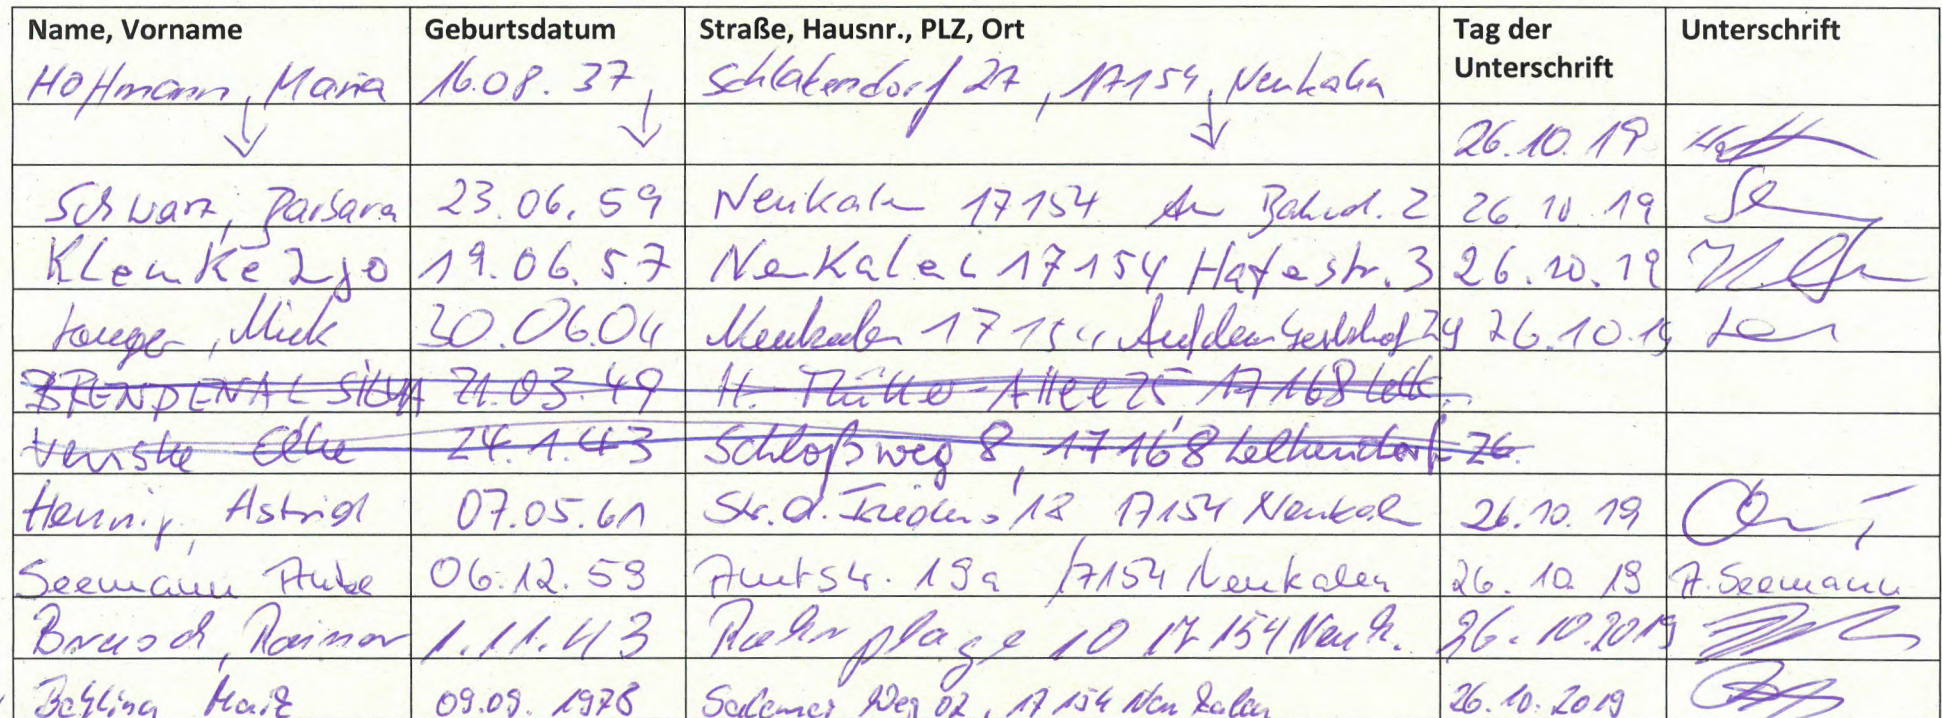 Name, Vorname Geburtsdatum Straße, Hausnr., PLZ, Ort Tag der Unterschrift Unterschrift
Hoffmann, Maria 16.08.37 Schlakendorf 27, 17154, Neukalen
26.10.19
Schwarz, Barbara 23.06.59 Neukalen 17154 Am Bahnd. 2 26.10.19
Klemke 19.06.57 Neukalen 17154 Hafestr. 3 26.10.19
Mick 30.06.04 Neukalen 17154 Auf dem 29 26.10.19
BRENDENAL SILVIA 21.03.49 H. Allee 25 17168 Lelk.
Venske Elke 24.1.43 Schloßweg 8, 17168 Lelkendorf 26.
Hennig, Astrid 07.05.61 Str. d. Friedens 18 17154 Neukal 26.10.19
Seemann Anke 06.12.59 Amtstr. 19a 17154 Neukalen 26.10.19 A. Seemann
Brasch, Rainer 1.11.43 10 17154 Neuk. 26.10.2019
Maik 09.09.1978 Salemer Weg 02, 17154 Neukalen 26.10.2019